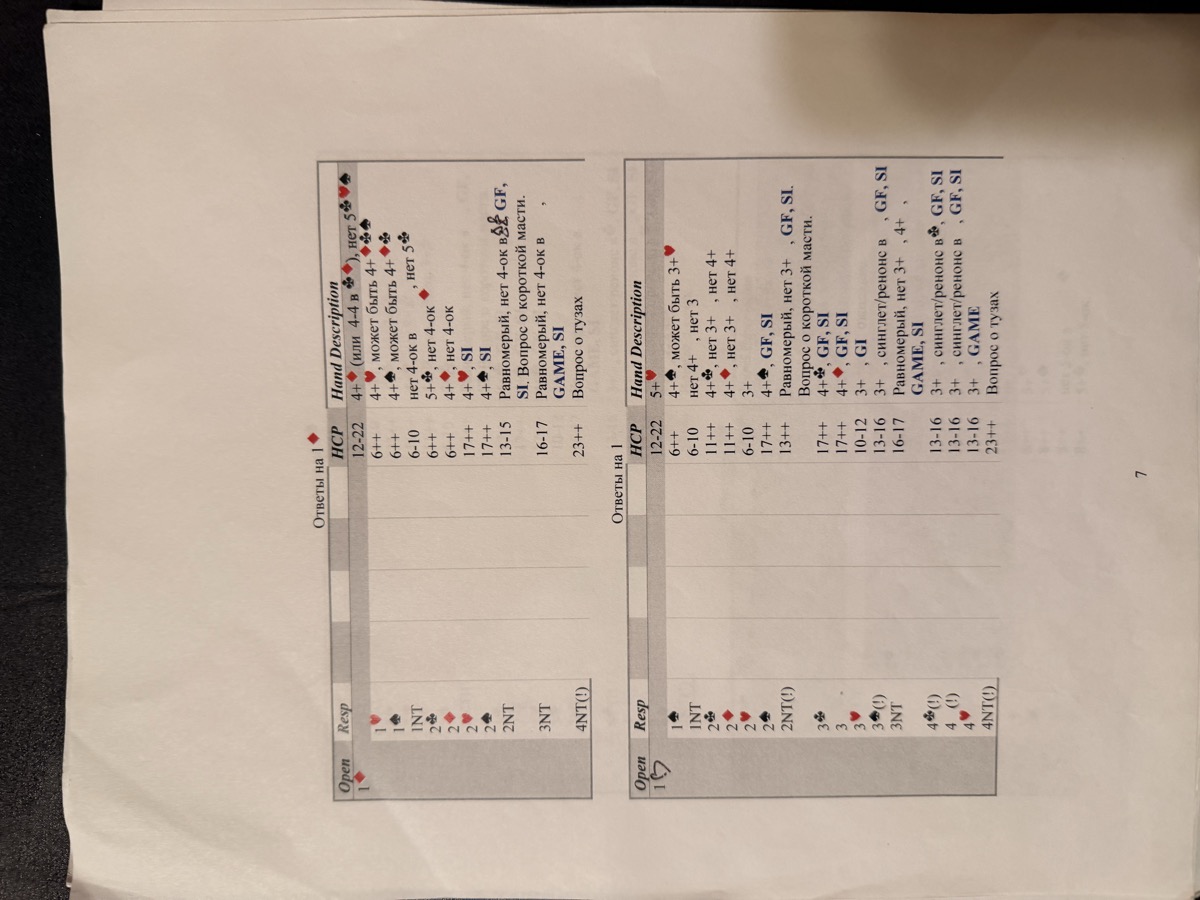 Ответы на 1♦
Open Resp HCP Hand Description
1♦ 12-22 4+♦ (или 4-4 в ♣♦), нет 5♣♥♠
1♥ 6++ 4+♥, может быть 4+♦♣♠
1♠ 6++ 4+♠, может быть 4+♦♣
1NT 6-10 нет 4-ок в , нет 5♣
2♣ 6++ 5+♣, нет 4-ок♦
2♦ 6++ 4+♦, нет 4-ок
2♥ 17++ 4+♥, SI
2♠ 17++ 4+♠, SI
2NT 13-15 Равномерый, нет 4-ок в GF,
SI. Вопрос о короткой масти.
3NT 16-17 Равномерый, нет 4-ок в ,
GAME, SI
4NT(!) 23++ Вопрос о тузах
Ответы на 1
Open Resp HCP Hand Description
1♡ 12-22 5+♥
1♠ 6++ 4+♠, может быть 3+♥
1NT 6-10 нет 4+ , нет 3
2♣ 11++ 4+♣, нет 3+ , нет 4+
2♦ 11++ 4+♦, нет 3+ , нет 4+
2♥ 6-10 3+
2♠ 17++ 4+♠, GF, SI
2NT(!) 13++ Равномерый, нет 3+ , GF, SI.
Вопрос о короткой масти.
3♣ 17++ 4+♣, GF, SI
3 17++ 4+♦, GF, SI
3♥ 10-12 3+ , GI
3♠(!) 13-16 3+ , синглет/ренонс в , GF, SI
3NT 16-17 Равномерый, нет 3+ , 4+ ,
GAME, SI
4♣(!) 13-16 3+ , синглет/ренонс в♣, GF, SI
4 (!) 13-16 3+ , синглет/ренонс в , GF, SI
4♥ 13-16 3+ , GAME
4NT(!) 23++ Вопрос о тузах
7